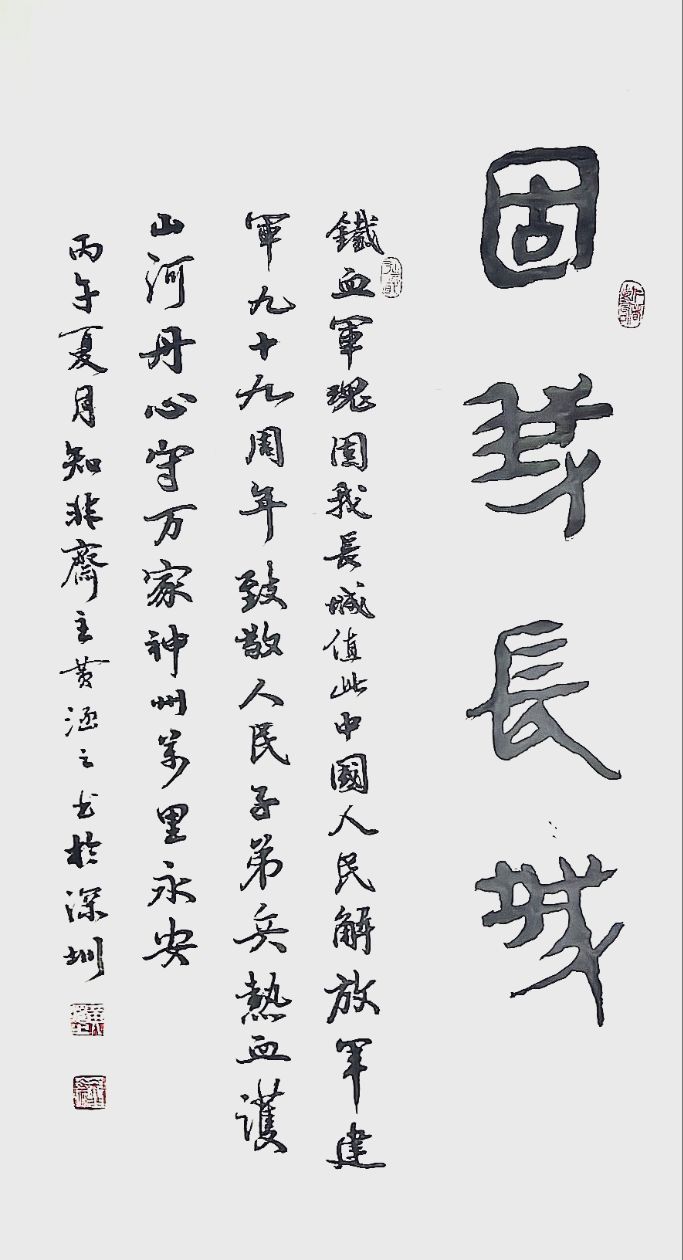 固我長城
鐵血軍魂固我長城值此中國人民解放軍建
軍九十九周年致敬人民子弟兵熱血護
山河丹心守万家神州萬里永安
丙午夏月知非齋主黄涵之书於深圳